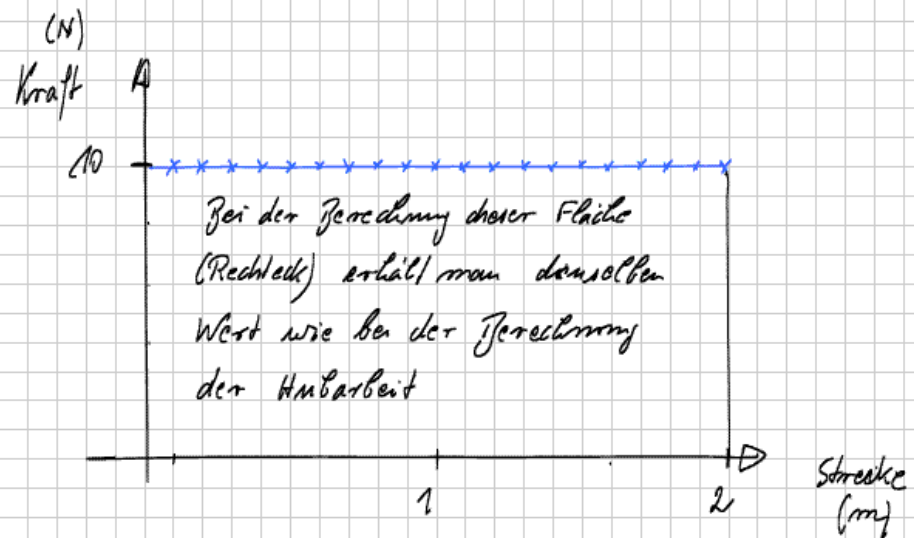 (N)
Kraft
10
Bei der Berechnung dieser Fläche
(Rechteck) erhält man denselben
Wert wie bei der Berechnung
der Hubarbeit
1
2
Strecke
(m)